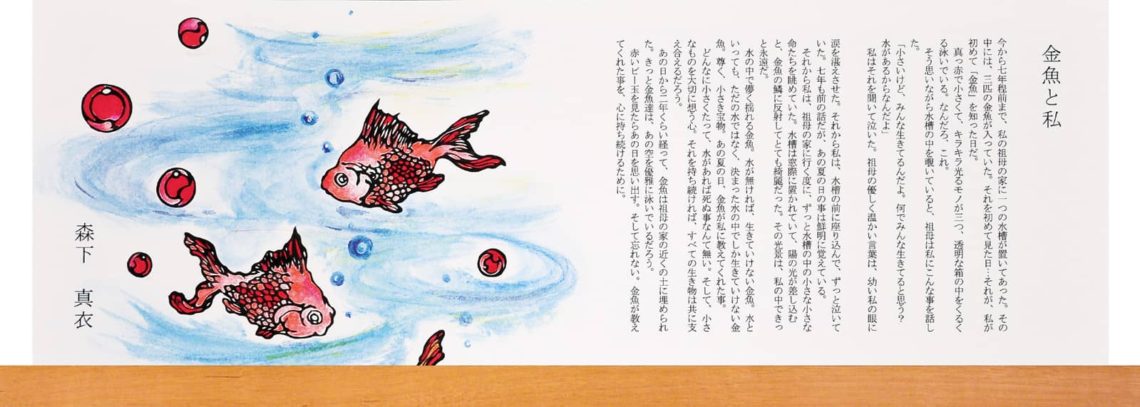 金魚と私
今から七年程前まで、私の祖母の家に一つの水槽が置いてあった。その
中には、三匹の金魚が入っていた。それを初めて見た日…それが、私が
初めて「金魚」を知った日だ。
真っ赤で小さくて、キラキラ光るモノが三つ、透明な箱の中をくるく
る泳いでいる。なんだろ、これ。
そう思いながら水槽の中を覗いていると、祖母は私にこんな事を話し
た。
「小さいけど、みんな生きてるんだよ。何でみんな生きてると思う？
水があるからなんだよ」
私はそれを聞いて泣いた。祖母の優しく温かい言葉は、幼い私の眼に
涙を湛えさせた。それから私は、水槽の前に座り込んで、ずっと泣いて
いた。七年も前の話だが、あの夏の日の事は鮮明に覚えている。
それから私は、祖母の家に行く度に、ずっと水槽の中の小さな小さな
命たちを眺めていた。水槽は窓際に置かれていて、陽の光が差し込む
と、金魚の鱗に反射してとても綺麗だった。その光景は、私の中できっ
と永遠だ。
水の中で儚く揺れる金魚。水が無ければ、生きていけない金魚。水と
いっても、ただの水ではなく、決まった水の中でしか生きていけない金
魚。尊く、小さき宝物。あの夏の日、金魚が私に教えてくれた事。
どんなに小さくたって、水があれば死ぬ事なんて無い。そして、小さ
なものを大切に想う心。それを持ち続ければ、すべての生き物は共に支
え合えるだろう。
あの日から二年くらい経って、金魚は祖母の家の近くの土に埋められ
た。きっと金魚達は、あの空を優雅に泳いでいるだろう。
赤いビー玉を見たらあの日を思い出す。そして忘れない。金魚が教え
てくれた事を、心に持ち続けるために。
森下 真衣